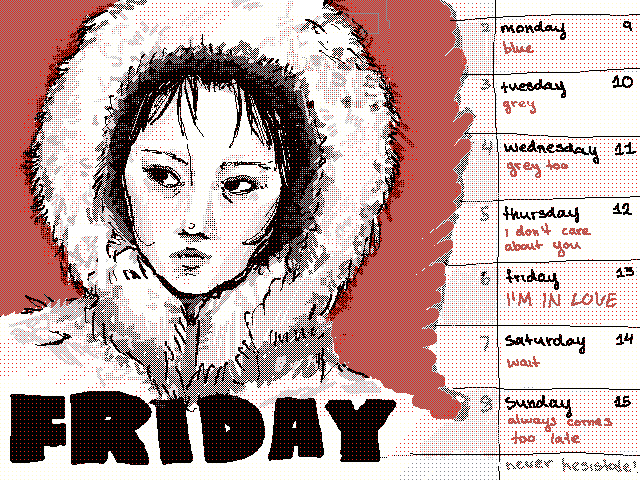 2 monday 9
blue
3 tuesday 10
grey
4 wednesday 11
grey too
5 thursday 12
i don't care
about you
6 friday 13
I'M IN LOVE
7 saturday 14
wait
9 sunday 15
always comes
too late
never hesistate!
FRIDAY